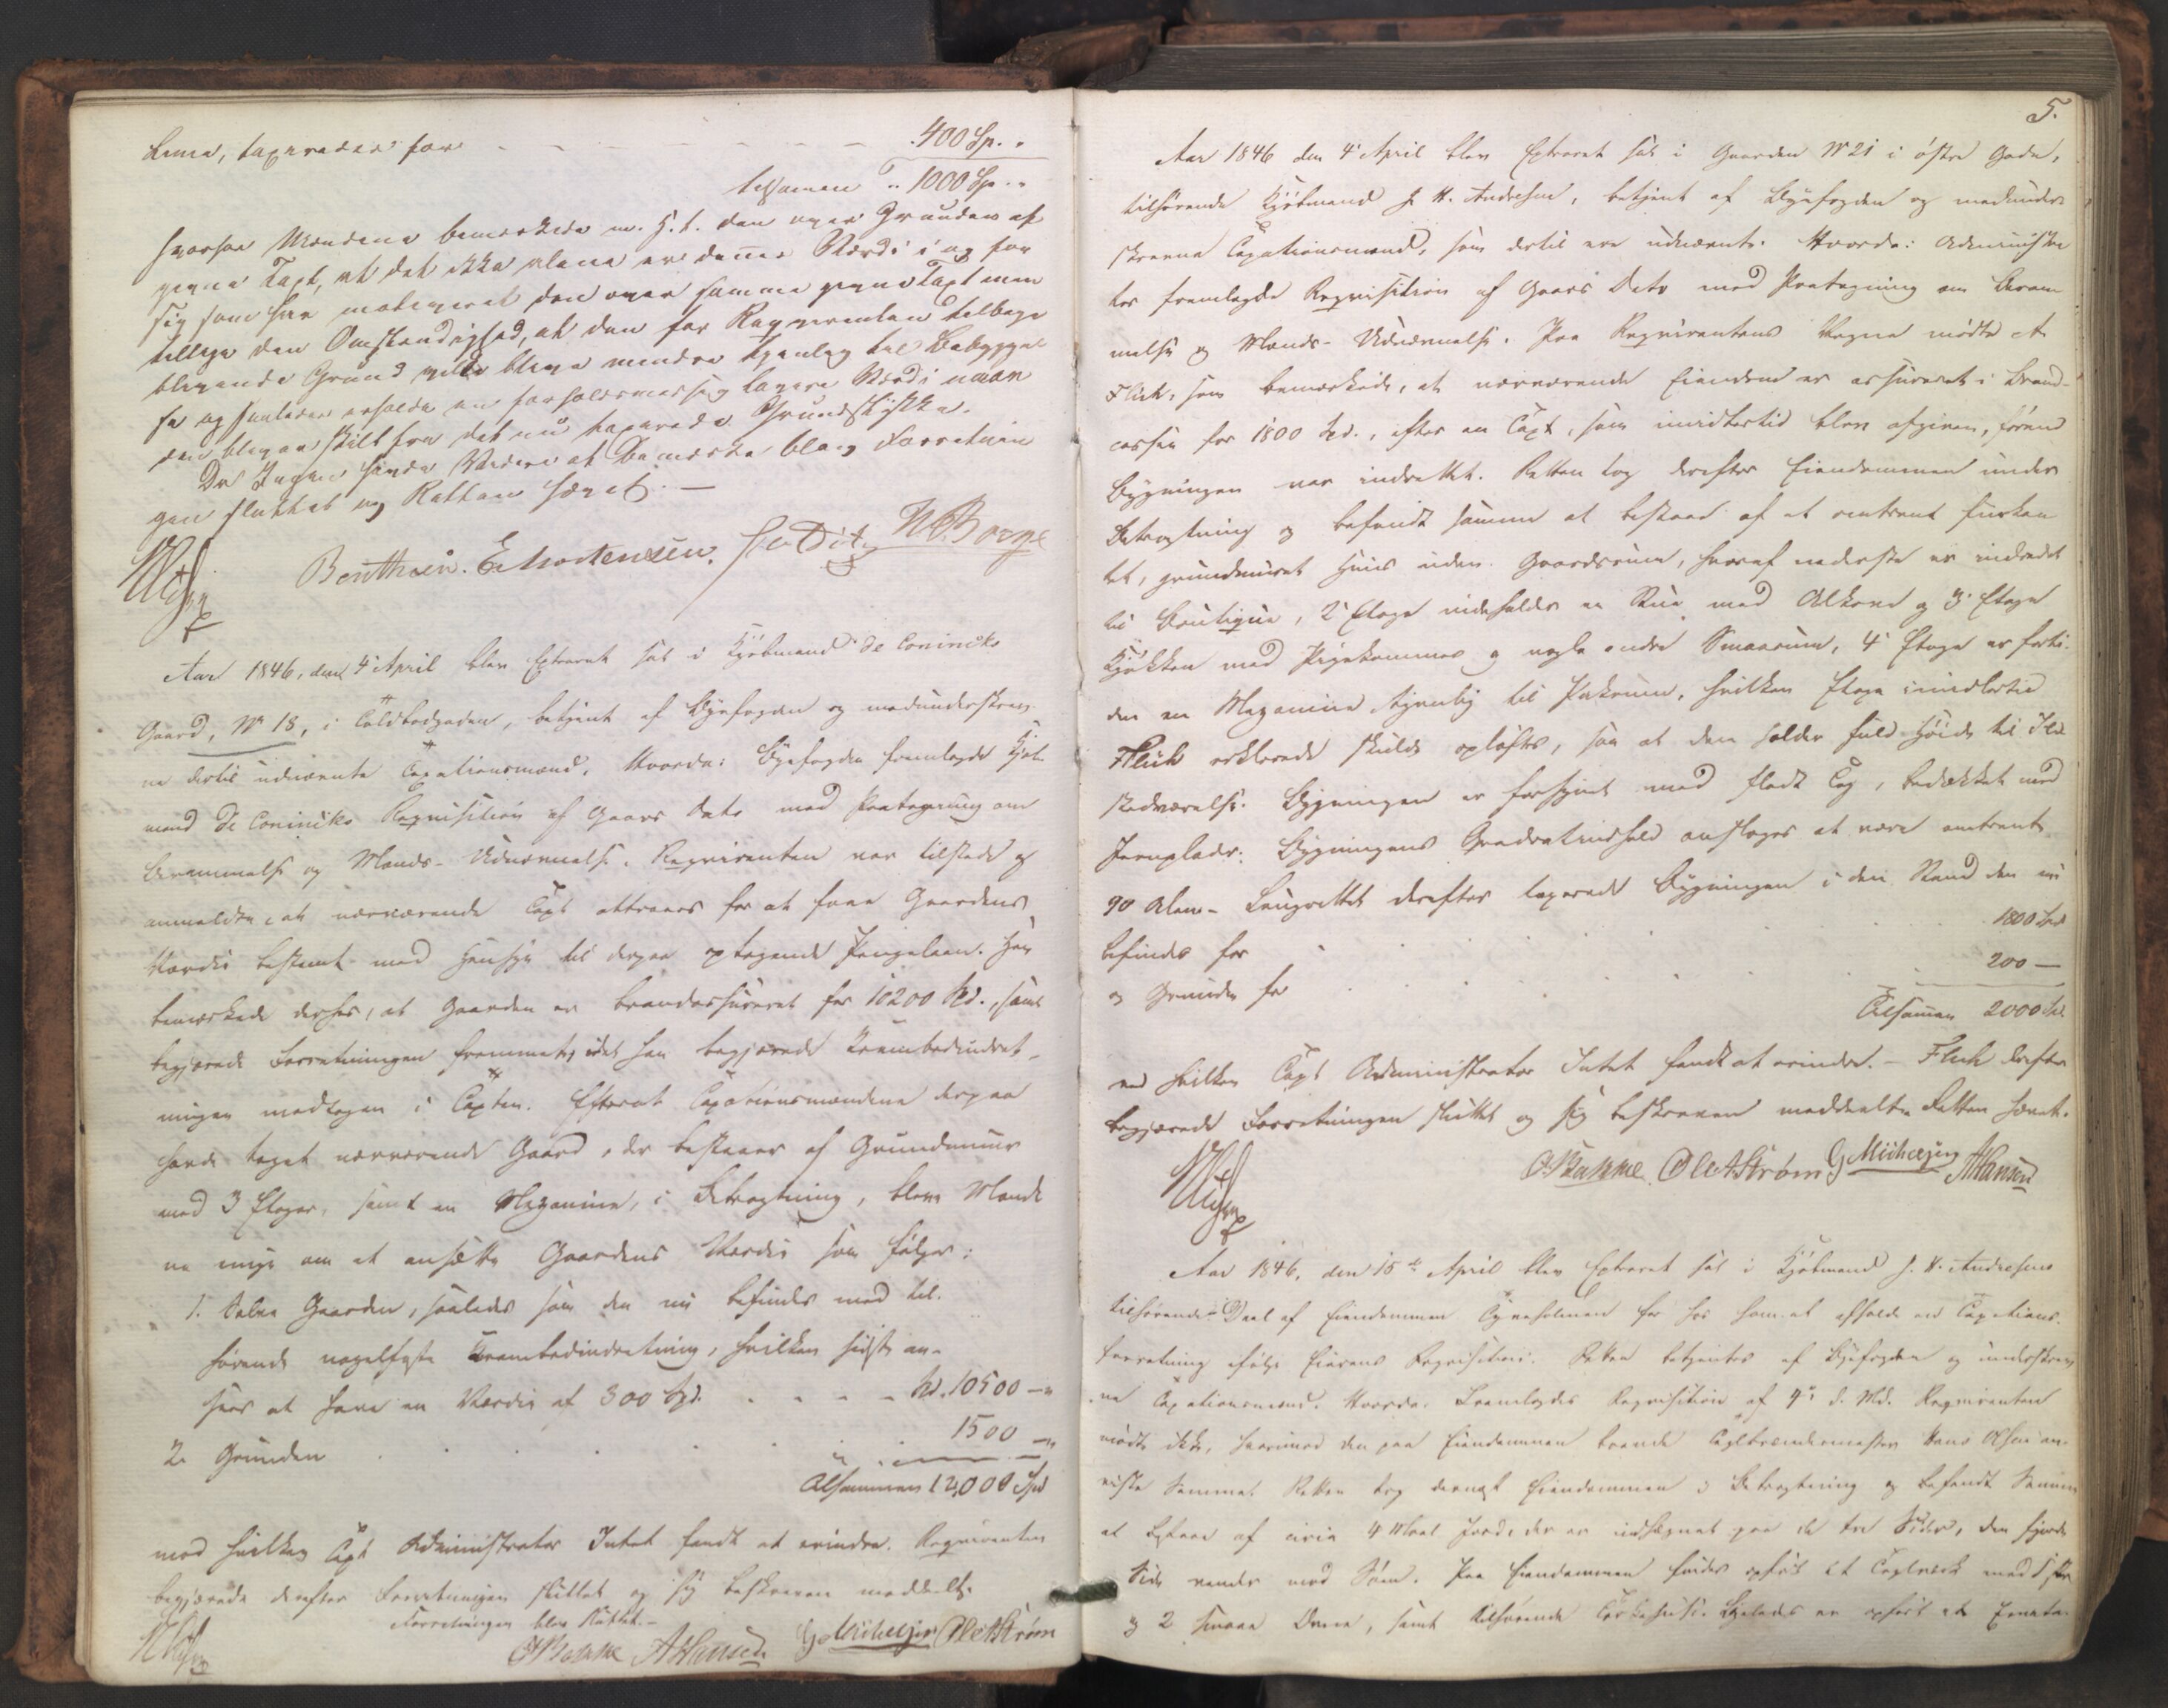 bema, taxerades for - - - - - - 400 Sp. "
tilsamen " 1000 Sp. "
hvorhos Mændene bemærkede m. H. t. den over Grunden af
givne Taxt, at det ikke alene er dennes Værdi i og for
sig som har motiveret den over samme givne Taxt men
tillige den Omstændighed, at den for Reqvirenten tilbage
blivende Grund vilde blive mindre tjenlig til Bebyggel
se og saaledes erholde en forholdsmæssig lavere Værdi naar
den bliver skilt fra det nu taxerede Grundstykke.
Da Ingen havde Videre at bemærke blev Forretnin
gen sluttet og Retten hævet. —
Benthsen. E Mortensen. N. Borge
Aar 1846, den 4' April blev Extraret sat i Kjøbmand de Conincks
Gaard, No 18, i Toldbodgaden, betjent af Byefogden og medunderskrev
ne dertil udnævnte Taxationsmænd. Hvorda: Byefogden fremlagde Kjøb
mand de Conincks Reqvisition af Gaars Dato med Paategning om
Berammelse og Mands-Udnævnelse. Reqvirenten var tilstede og
anmeldte, at nærværende Taxt attraaes for at faae Gaardens
Værdie bestemt med Hensyn til derpaa optagende Pengelaan. Han
bemærkede derhos, at Gaarden er brandassureret for 10200 Spd., samt
begjærede Forretningen fremmet, idet han begjærede Krambodindret-
ningen medtagen i Taxten. Efterat Taxationsmændene derpaa
havde taget nærværende Gaard, der bestaaer af Grundmuur
med 3 Etager, samt en Mezanine, i Betragtning, bleve Mænde
ne enige om at ansætte Gaardens Værdie som følger:
1. Selve Gaarden, saaledes som den nu befindes med til-
hørende nagelfaste Krambodindretning, hvilken sidste an-
sees at have en Værdie af 300 Spd. . . - - - Spd. 10500 — "
2. Grunden . . . . . . 1500 — "
Alsammen 12,000 Spd
mod hvilken Taxt Administrator Intet fandt at erindre. Reqvirenten
begjærede derefter Forretningen sluttet og sig beskreven meddeelt.
Forretningen blev sluttet. —
A Hansen G Michelsen Ole A Strøm
5.
Aar 1846 den 4' April blev Extraret sat i Gaarden No 21 i østre Gade,
tilhørende Kjøbmand J. H. Andresen, betjent af Byefogden og medunder
skrevne Taxationsmænd, som dertil ere udnævnte. Hvorda: Administra
tor fremlagde Reqvisition af Gaars Dato med Paategning om Beram
melse og Mands-Udnævnelse. Paa Reqvirentens Vegne mødte A.
Flick, som bemærkede, at nærværende Eiendom er assureret i Brand-
cassen for 1800 Spd., efter en Taxt, som imidlertid blev afgiven, førend
Bygningen var indrettet. Retten tog derefter Eiendommen under
Betragtning og befandt samme at bestaae af et omtrent fiirkan
tet, grundmuret Huus uden Gaardsrum, hvoraf nederste er indredet
til Boutique, 2' Etage indeholder en Stue med Alkove og 3' Etage
Kjøkken med Pigekammer og nogle andre Smaarum, 4' Etage er forti-
den en Mezanine tjenlig til Pakrum, hvilken Etage imidlertid
Flick erklærede skulde opløftes, saa at den holder fuld Høide til Ild
stedværelse. Bygningen er forsynet med fladt Tag, bedækket med
Jernplader. Bygningens Qvadratindhold ansloges at være omtrent
90 Alen. - Laugrettet derefter taxerede Bygningen i den Stand den nu
befindes for . . . . . . 1800 Spd
og Grunden for . . . . . . 200 —
Tilsammen 2000 Spd.
ved hvilken Taxt Administrator Intet fandt at erindre. — Flick derefter
begjærede Forretningen sluttet og sig beskreven meddeelt. Retten hævet.
Ole A Strøm G Michelsen A Hansen
Aar 1846, den 15de April blev Extraret sat i Kjøbmand J. H. Andresens
tilhørende Deel af Eiendommen Tyveholmen for hos ham at afholde en Taxations-
forretning ifølge Eierens Reqvisition. Retten betjentes af Byefogden og underskrev
ne Taxationsmænd. Hvorda: Fremlagdes Reqvisition af 4' d. Md. Reqvirenten
mødte ikke, hvorimod den paa Eiendommen boende Teglbrændermester Hans Olsen an-
viste Samme. Retten tog dernæst Eiendommen i Betragtning og befandt Samme
at bestaae af circa 4 Maal Jord, der er indhegnet paa de tre Sider, den fjerde
Side vender mod Søen. Paa Eiendommen findes opført et Teglværk med 1 stor
og 2 smaae Ovne, samt tilhørende Tørkehuse. Ligeledes er opført et